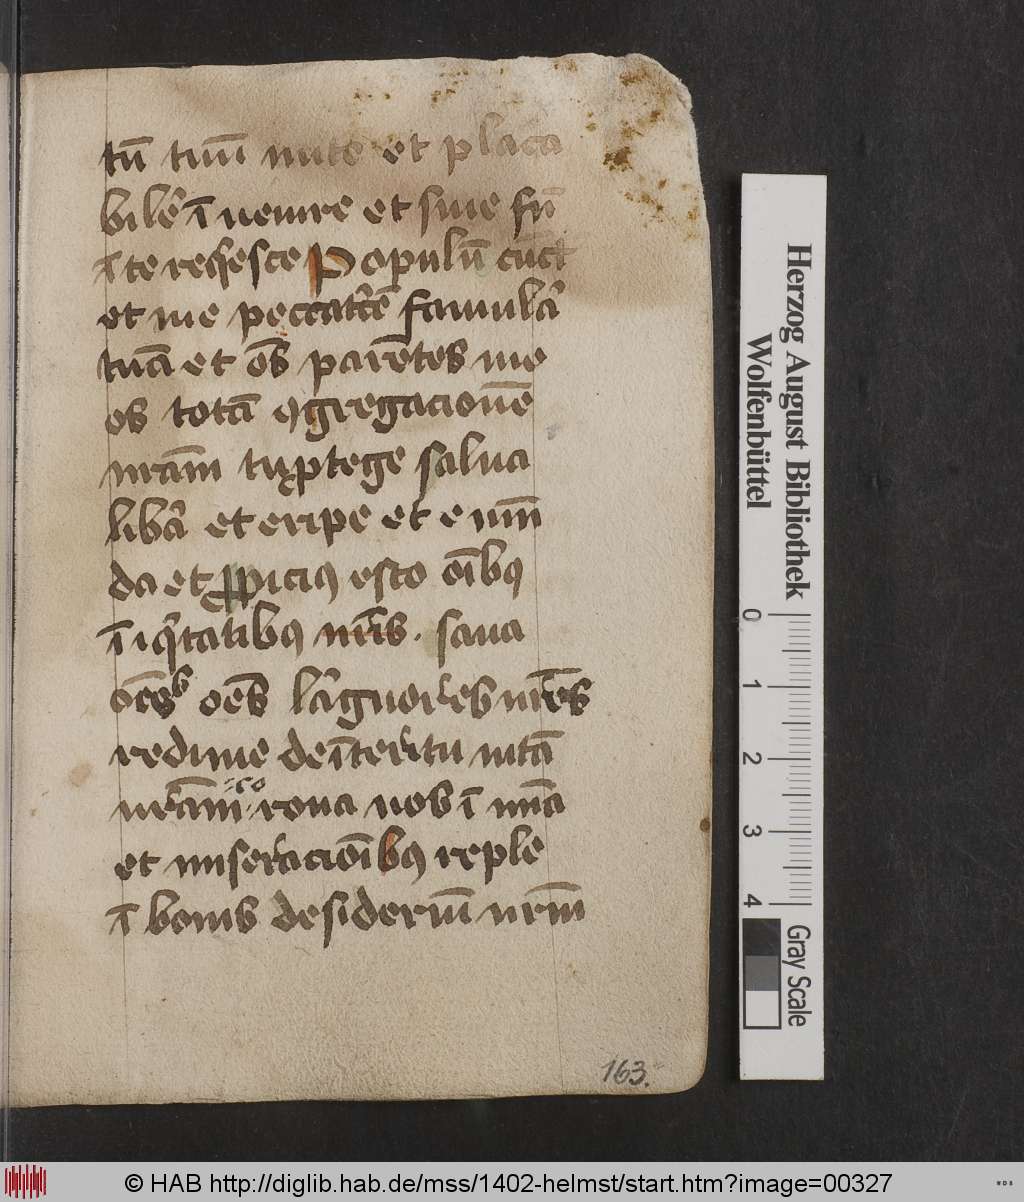 tū tuū mite et placa
bilē ī uenire et sine fī
ī te reqͥesce Populū cūct
et me peccatͥcē famulā
tuā et oēs parētes me
os totā ꝯgregacionē
nr̄am tu ꝓtege salua
libͣa et eripe et e mū
da et ꝓpiciꝰ esto oībꝰ
ī iqͥtatibꝰ nr̄is . sana
oēs lāguores nr̄os
redime de īteritu uitā
nr̄am co rona nos ī mīa
et miseracioībꝰ reple
ī bonis desideriū nr̄m
163.
Herzog August Bibliothek
Wolfenbüttel
0 1 2 3 4
Gray Scale
© HAB http://diglib.hab.de/mss/1402-helmst/start.htm?image=00327